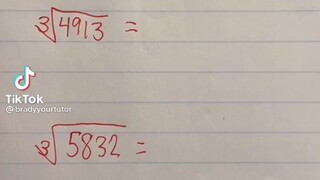 ∛4913 =
TikTok
@bradyyourtutor
∛5832 =